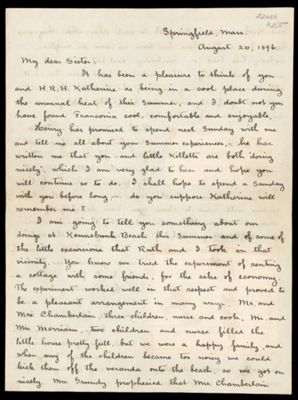 Springfield, Mass.
August 20, 1896.
My dear Sister:
It has been a pleasure to think of you
and H.R.H. Katherine as being in a cool place during
the unusual heat of this Summer, and I doubt not you
have found Franconia cool, comfortable and enjoyable.
has promised to spend next Sunday with me
and tell me all about your Summer experiences,- he has
written me that you and little Killette are both "doing
nicely", which I am very glad to hear and hope you
will continue so to do. I shall hope to spend a Sunday
with you before long - do you suppose Katherine will
remember me?
I am going to tell you something about our
doings at Kennebunk Beach this Summer and of some of
the little excursions that Ruth and I took in that
vicinity. You know we tried the experiment of renting
a cottage with some friends, for the sake of economy.
The experiment worked well in that respect and proved to
be a pleasant arrangement in many ways. Mr. and
Mrs. Chamberlain, three children, nurse and cook, Mr. and
Mrs. Merriam, two children and nurse filled the
little house pretty full, but we were a happy family and
when any of the children became too noisy we could
kick them off the veranda onto the beach, so we got on
nicely. Mrs. Grundy prophesied that Mrs. Chamberlain